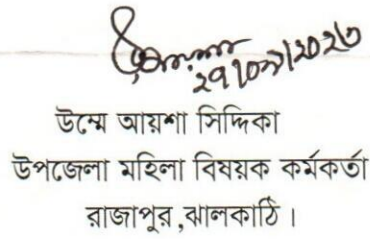 ২৭/০৯/২০২৩
উম্মে আয়শা সিদ্দিকা
উপজেলা মহিলা বিষয়ক কর্মকর্তা
রাজাপুর,ঝালকাঠি।